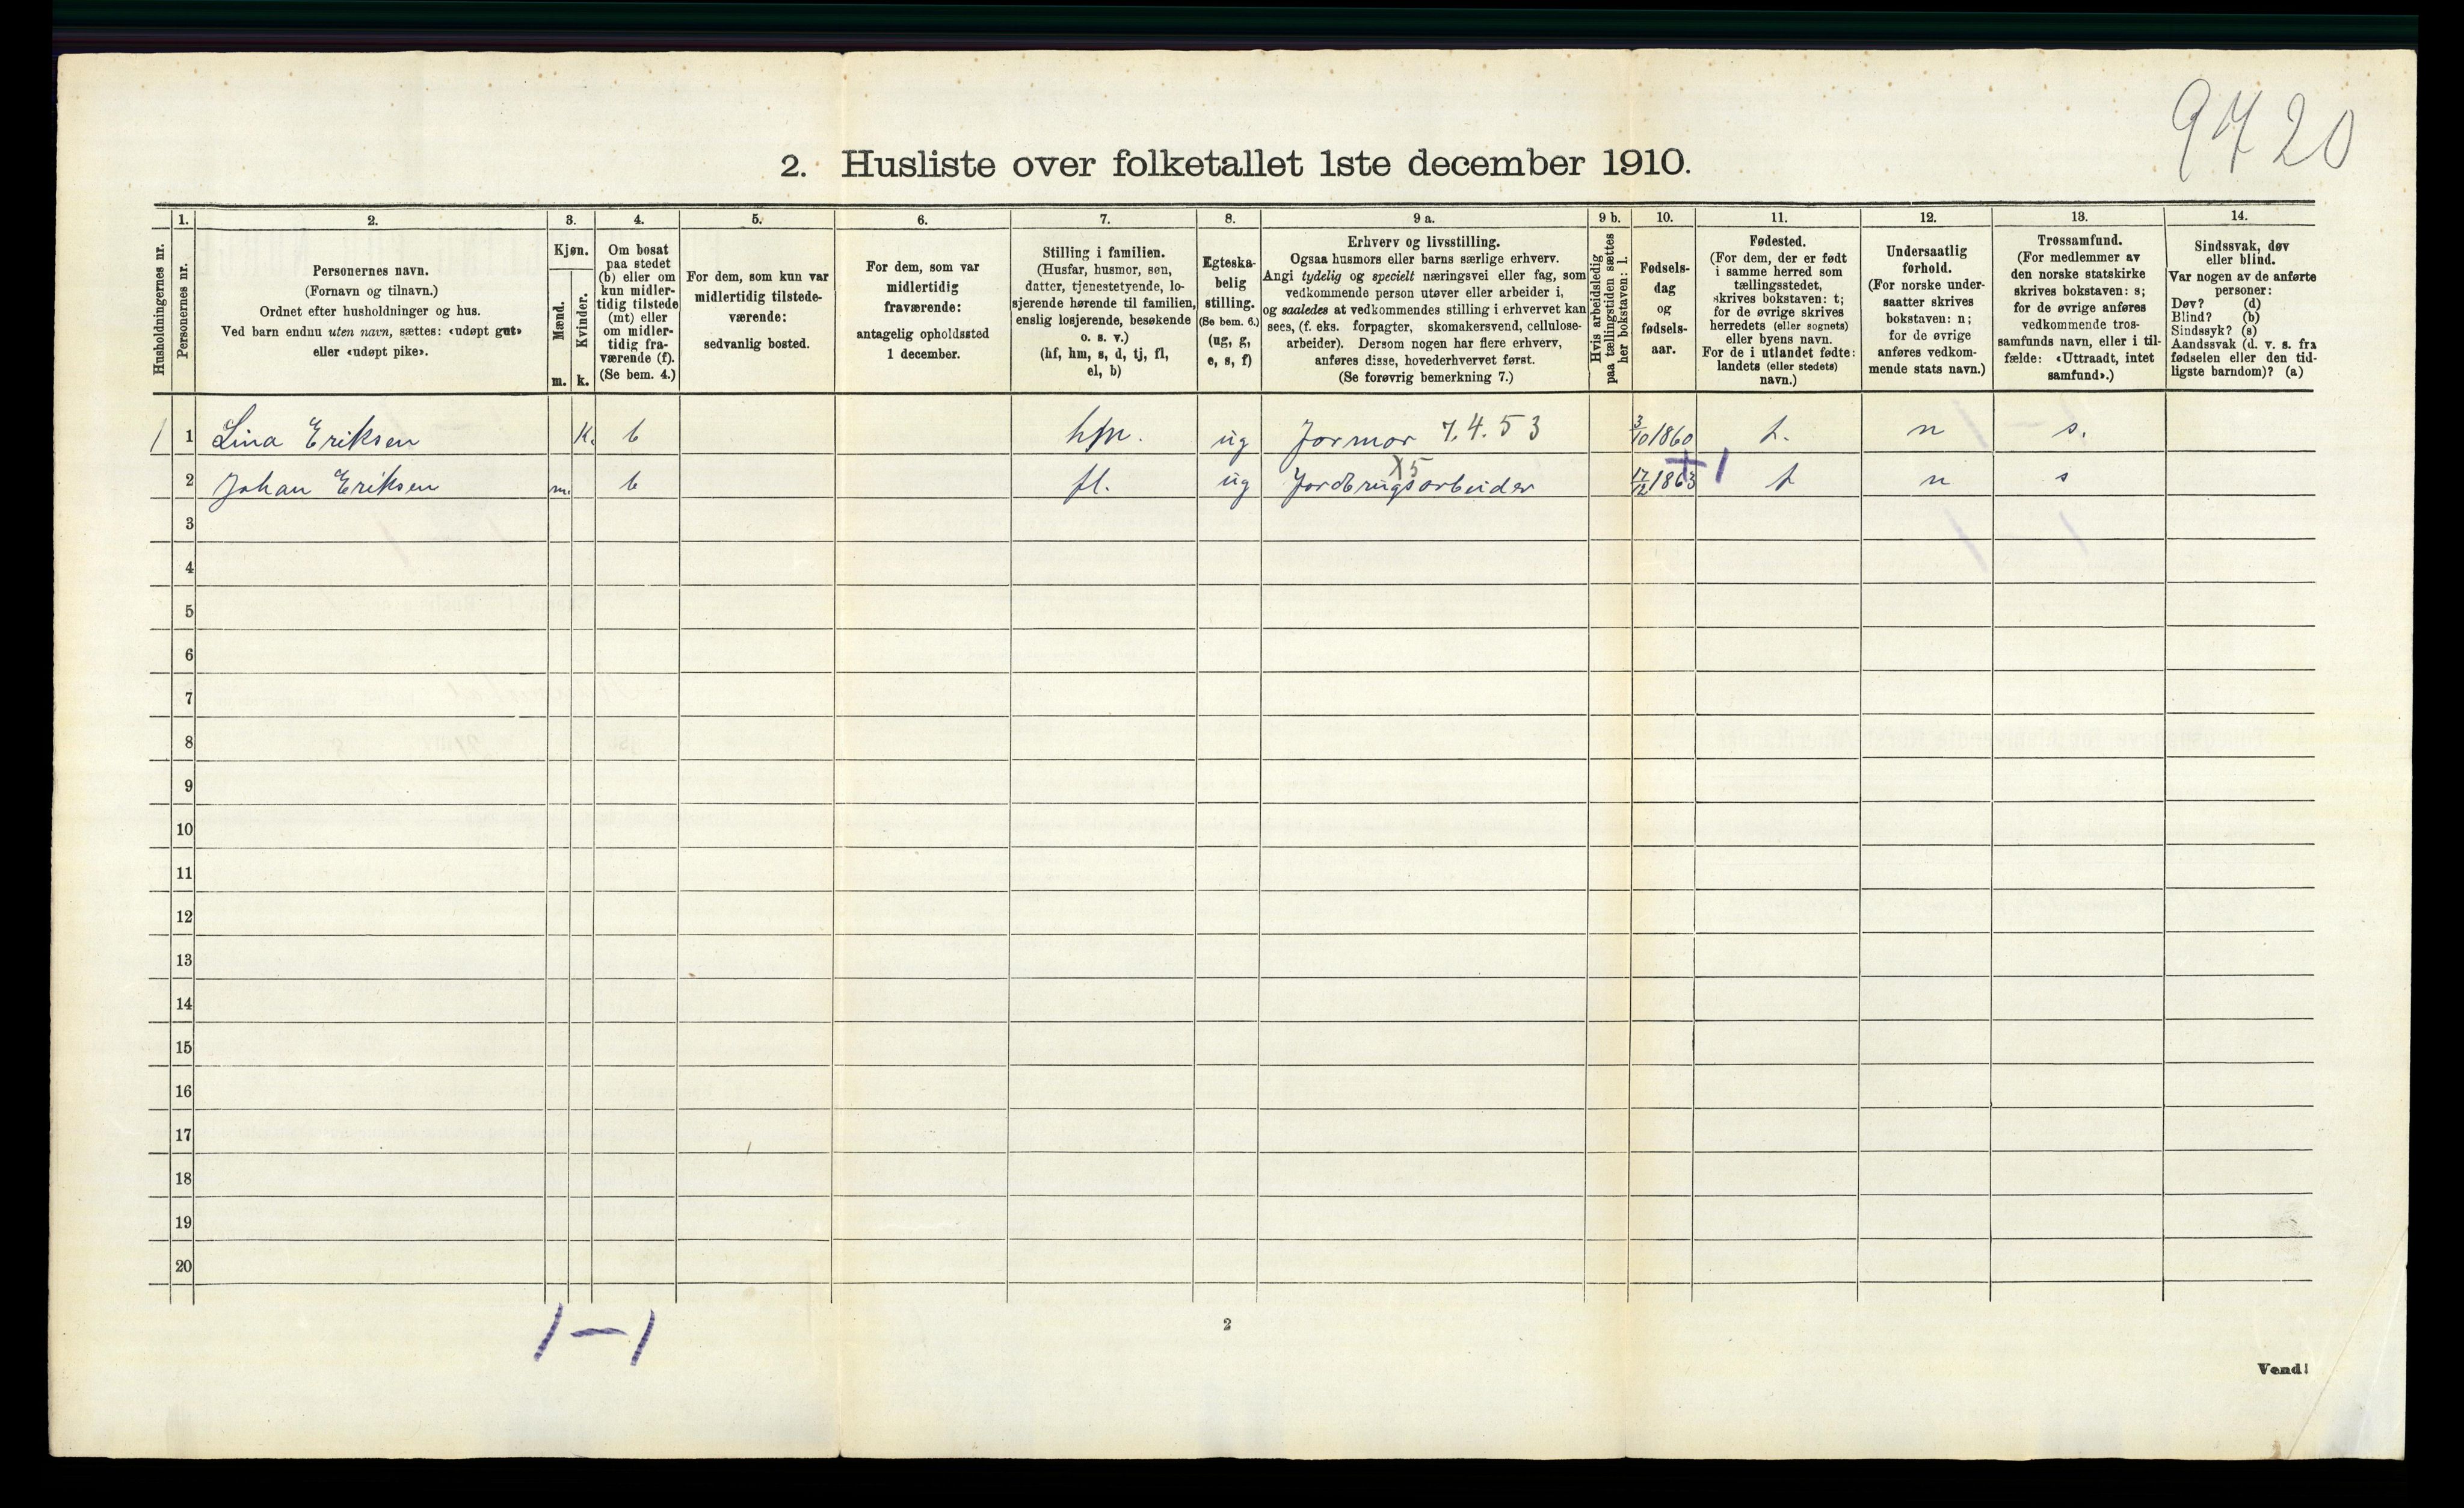 9720
2. Husliste over folketallet 1ste december 1910.
Husholdningernes nr.
1.
Personernes nr.
2.
Personernes navn.
(Fornavn og tilnavn.)
Ordnet efter husholdninger og hus.
Ved barn endnu uten navn, sættes: «udøpt gut»
eller «udøpt pike».
3.
Kjøn.
Mænd.
m.
Kvinder.
k.
4.
Om bosat
paa stedet
(b) eller om
kun midler-
tidig tilstede
(mt) eller
om midler-
tidig fra-
værende (f).
(Se bem. 4.)
5.
For dem, som kun var
midlertidig tilstede-
værende:
sedvanlig bosted.
6.
For dem, som var
midlertidig
fraværende:
antagelig opholdssted
1 december.
7.
Stilling i familien.
(Husfar, husmor, søn,
datter, tjenestetyende, lo-
sjerende hørende til familien,
enslig losjerende, besøkende
o. s. v.)
(hf, hm, s, d, tj, fl,
el, b)
8.
Egteska-
belig
stilling.
(Se bem. 6.)
(ug, g,
e, s, f)
9 a.
Erhverv og livsstilling.
Ogsaa husmors eller barns særlige erhverv.
Angi tydelig og specielt næringsvei eller fag, som
vedkommende person utøver eller arbeider i,
og saaledes at vedkommendes stilling i erhvervet kan
sees, (f. eks. forpagter, skomakersvend, cellulose-
arbeider). Dersom nogen har flere erhverv,
anføres disse, hovederhvervet først.
(Se forøvrig bemerkning 7.)
9 b.
Hvis arbeidsledig
paa tællingstiden sættes
her bokstaven: l.
10.
Fødsels-
dag
og
fødsels-
aar.
11.
Fødested.
(For dem, der er født
i samme herred som
tællingsstedet,
skrives bokstaven: t;
for de øvrige skrives
herredets (eller sognets)
eller byens navn.
For de i utlandet fødte:
landets (eller stedets)
navn.)
12.
Undersaatlig
forhold.
(For norske under-
saatter skrives
bokstaven: n;
for de øvrige
anføres vedkom-
mende stats navn.)
13.
Trossamfund.
(For medlemmer av
den norske statskirke
skrives bokstaven: s;
for de øvrige anføres
vedkommende tros-
samfunds navn, eller i til-
fælde: «Uttraadt, intet
samfund».)
14.
Sindssvak, døv
eller blind.
Var nogen av de anførte
personer:
Døv? (d)
Blind? (b)
Sindssyk? (s)
Aandssvak (d. v. s. fra
fødselen eller den tid-
ligste barndom)? (a)
1 1 Lina Eriksen K. b ug 7.4.53 3/10 1860 t. n s.
2 Johan Eriksen m. b fl. ug Jordbrugsarbeider X5 17/12 1863 +1 t n s
3
4
5
6
7
8
9
10
11
12
13
14
15
16
17
18
19
20
1 — 1
2
Vend!